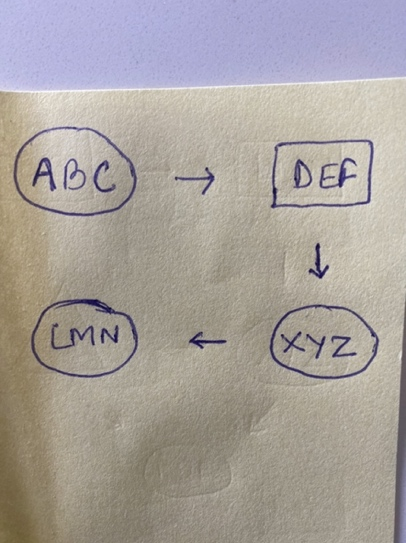 ABC → DEF
↓
LMN ← XYZ